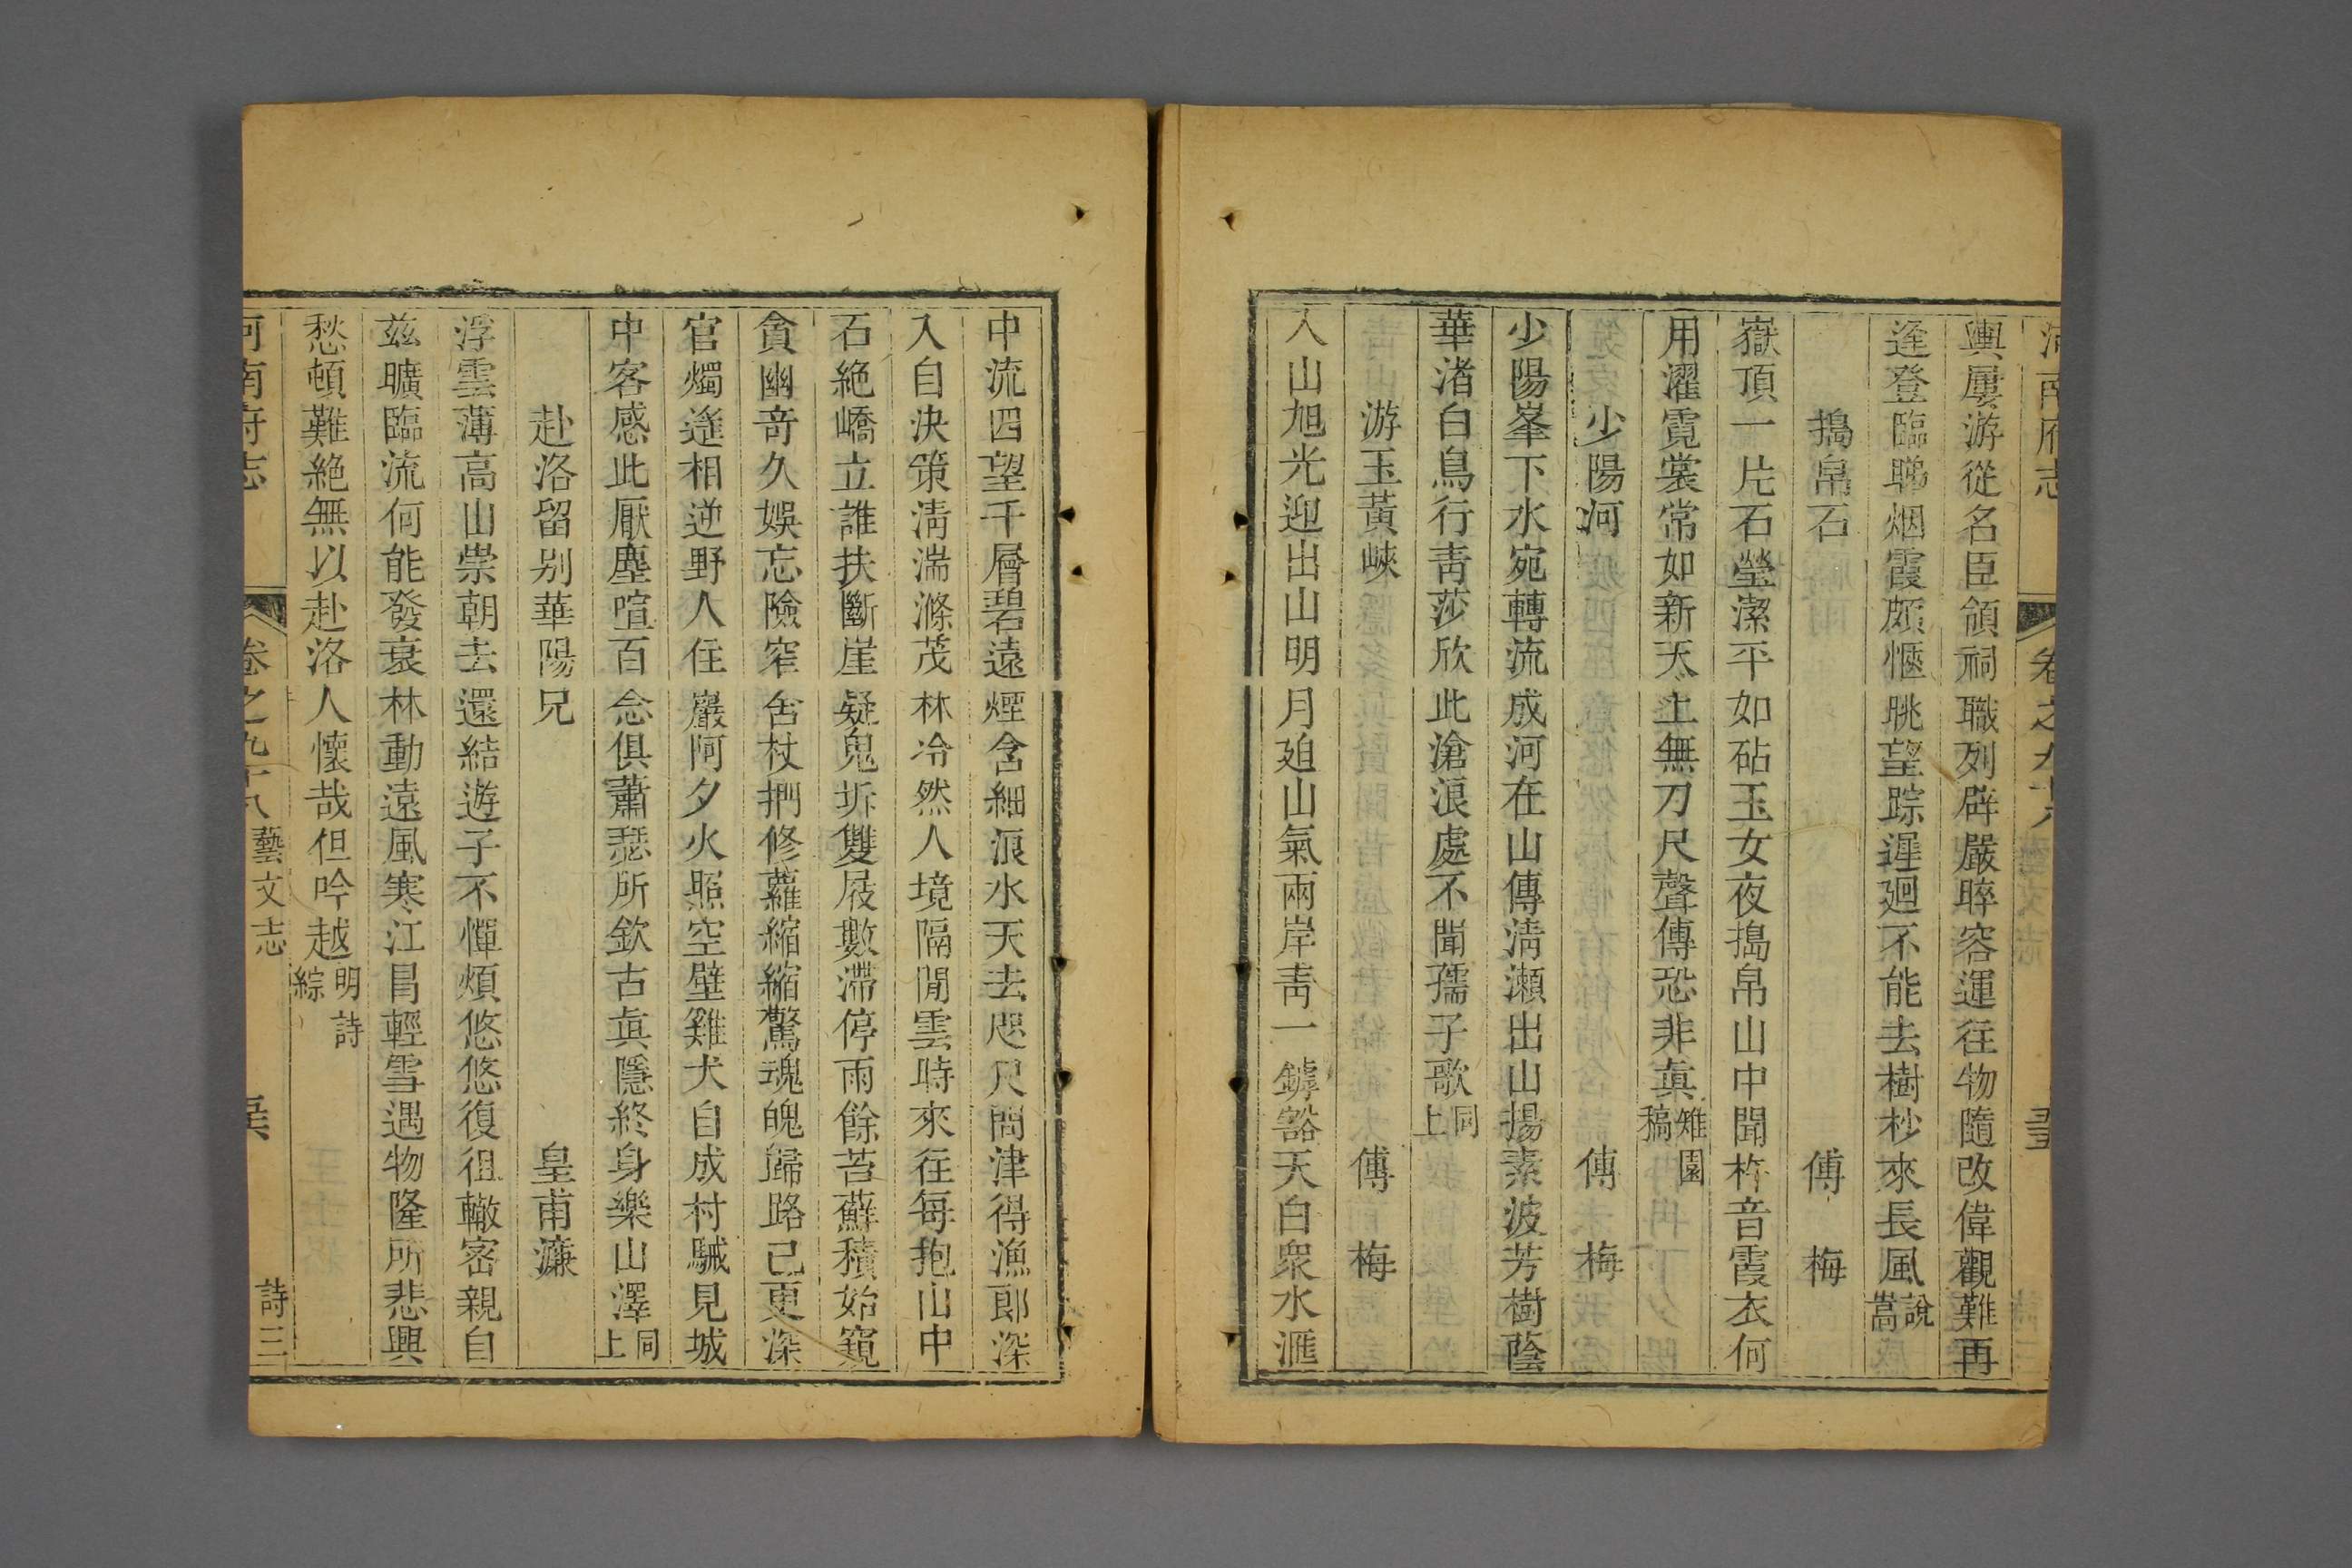 河南府志 卷之九十八
輿屢游從名臣領祠職列辟嚴睟容運往物隨改偉觀難再
逢登臨睇烟霞頗愜眺望踪遲廻不能去樹杪來長風說嵩
搗帛石 傅梅
嶽頂一片石瑩潔平如砧玉女夜搗帛山中聞杵音霞衣何
用濯霓裳常如新天上無刀尺聲傳恐非眞雉園稿
少陽河 傅梅
少陽峯下水宛轉流成河在山傳淸瀬出山揚素波芳樹蔭
華渚白鳥行靑莎欣此滄浪處不聞孺子歌同上
游玉黃峽 傅梅
入山旭光迎出山明月廹山氣兩岸靑一罅豁天白衆水滙
中流四望千層碧遠煙含細浪水天去咫尺問津得漁郎深
入自決策淸湍滌茂林冷然人境隔閒雲時來往每抱山中
石絶嶠立誰扶斷崖疑鬼坼雙屐數滯停雨餘苔蘚積始窺
貪幽奇久娛忘險窄舍杖捫修蘿縮縮驚魂魄歸路已更深
官燭遙相逆野人住巖阿夕火照空壁雞犬自成村駴見城
中客感此厭塵喧百念俱蕭瑟所欽古眞隱終身樂山澤同上
赴洛留别華陽兄 皇甫濂
浮雲薄高山崇朝去還結遊子不憚煩悠悠復徂轍密親自
兹曠臨流何能發衰林動遠風寒江冒輕雪遇物隆所悲興
愁頓難絶無以赴洛人懷哉但吟越明詩綜
河南府志 卷之九十八 藝文志 詩三